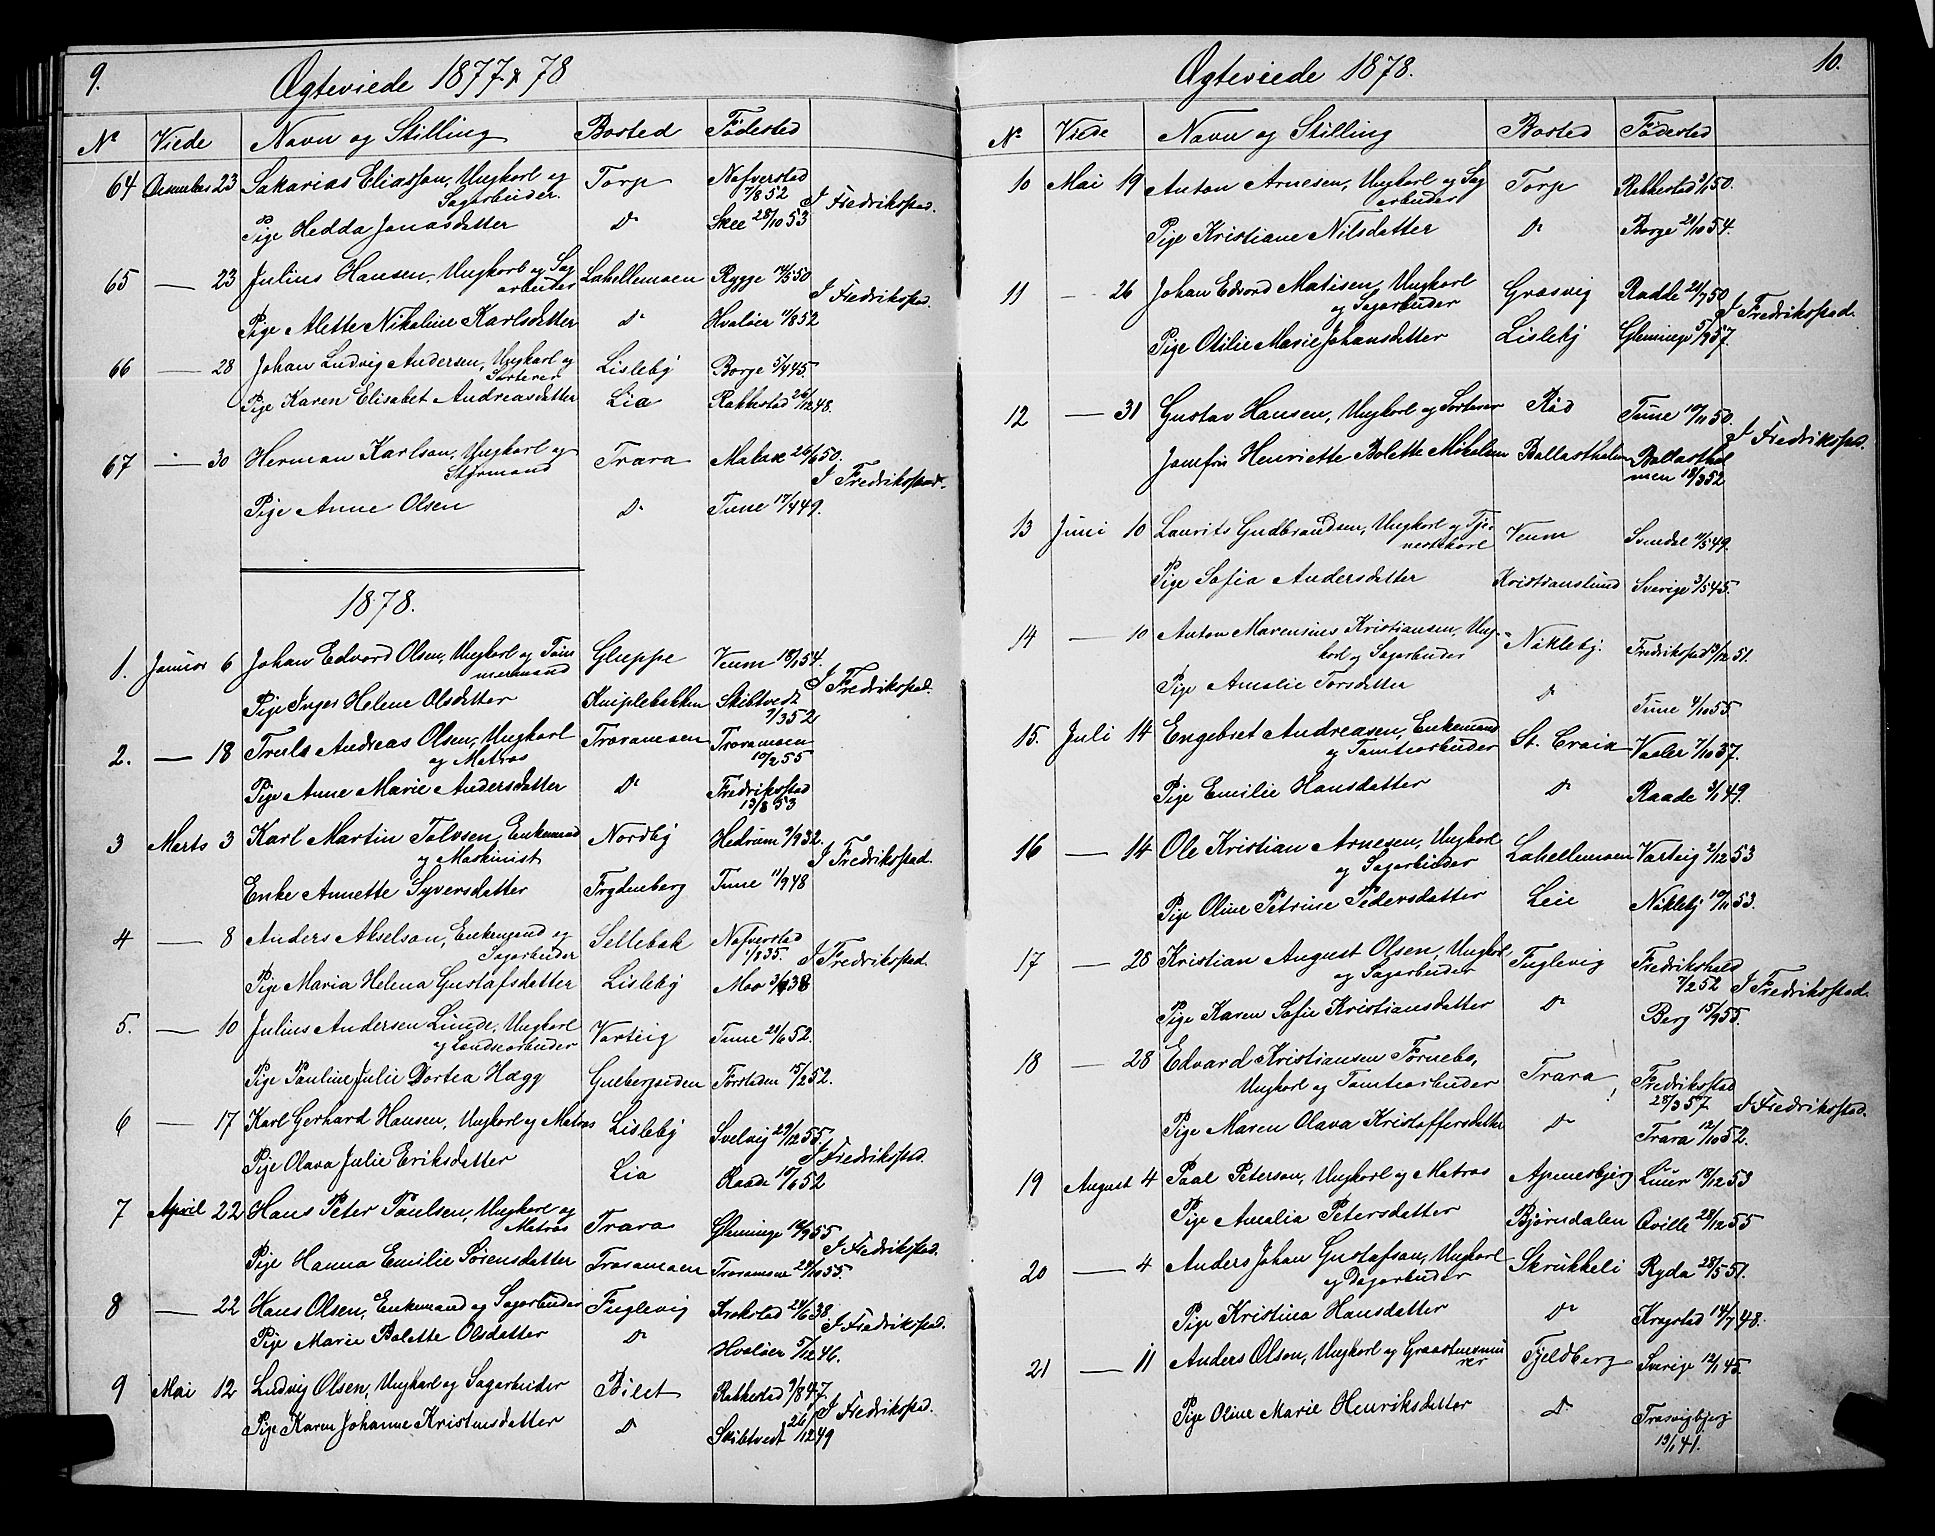 9.
Ægteviede 1877 & 78
Nº Viede Navn og Stilling Bosted Fødested
64 December 23 Sakarias Eliasson, Ungkarl og Torp Nafverstad
Sagarbeider. 7/8 52 I Fredrikstad.
Pige Hedda Jonasdatter Do Skee 28/10 53
65 — 23 Julius Hansen, Ungkarl og Sag Lahellemoen Rygge 14/5 50
arbeider I Fredrikstad.
Pige Alette Nikoline Karlsdatter Do Hvaløer 11/8 52
66 — 28 Johan Ludvig Andersen, Ungkarl og Lisleby Borge 5/4 45.
Sorterer
Pige Karen Elisabet Andreasdatter Lia Rakkestad 26/12 48.
67 — 30 Herman Karlson, Ungkarl og Trara 26/6 50.
Styrmand I Fredrikstad.
Pige Anne Olsen Do Tune 17/4 49.
1878.
1. Januar 6 Johan Edvard Olsen, Ungkarl og Tøm Gluppe Veum 18/1 54.
mermand I Fredrikstad.
Pige Inger Helene Olsdatter Kniplebakken Skibtvedt
9/3 52
2. — 18 Truls Andreas Olsen, Ungkarl Traramoen Traramoen
og Matros 19/2 55
Pige Anne Marie Andersdatter Do Fredrikstad
13/8 53
3 Marts 3 Karl Martin Tolvsen, Enkemand Nordby Hedrum 9/9 32.
og Maskinist I Fredrikstad.
Enke Annette Syversdatter Frydenberg Tune 11/9 48
4 — 8 Anders Akselson, Enkemand og Sellebak Nafverstad
Sagarbeider 1/8 35. I Fredrikstad.
Pige Maria Helena Gustafsdatter Lisleby Moo 3/9 38
5. — 10 Julius Andersen Lunde, Ungkarl Varteig Tune 20/6 52.
og Landsearbeider
Pige Pauline Julie Dortea Hægg Gulbergseiden Forstaden 15/2 52.
6 — 17 Karl Gerhard Hansen, Ungkarl og Matros Lisleby Svelvig 29/12 55.
I Fredrikstad.
Pige Olava Julie Eriksdatter Lia Raade 10/6 52
7 April 22 Hans Peter Paulsen, Ungkarl og Trara Glemminge 12/9 55
Matros I Fredrikstad.
Pige Hanna Emilie Sørensdatter Traramoen Traramoen 20/10 55.
8 — 22 Hans Olsen, Enkemand og Sagarbeider Fuglevig Krokstad 24/6 38.
I Fredrikstad.
Pige Marie Bolette Olsdatter Do Hvaløer 5/12 46.
9 Mai 12 Ludvig Olsen, Ungkarl og Sagarbeider Bilet Rakkestad 9/8 47
I Fredrikstad.
Pige Karen Johanne Kristensdatter Do Skibtvedt 26/12 49
10.
Ægteviede 1878.
Nº Viede Navn og Stilling Bosted Fødested
10 Mai 19 Anton Arnesen, Ungkarl og Sag Torp Rakkestad 3/1 50.
arbeider
Pige Kristiane Nilsdatter Do Borge 20/10 54.
11 — 26 Johan Edvard Matisen, Ungkarl Græsvig Raade 20/7 50
og Sagarbeider I Fredrikstad.
Pige Otilie Marie Johansdatter Lisleby Glemminge 5/9 57.
12 — 31 Gustav Hansen, Ungkarl og Sorterer Rød Tune 10/11 50.
I Fredrikstad.
Jomfru Henriette Bolette Mikelsen Ballastholmen Ballasthol
men 18/3 52
13 Juni 10 Laurits Gudbrandsen, Ungkarl og Tje- Veum 11/5 49.
nestekarl
Pige Sofia Andersdatter Kristianslund Sverige 3/5 45.
14 — 10 Anton Marensius Kristiansen, Ung- Nikleby. Fredrikstad 13/12 51.
karl og Sagarbeider
Pige Amalie Torsdatter Do Tune 4/10 55.
15. Juli 14 Engebret Andreasen, Enkemand St. Croix Vaaler 7/10 37.
og Tomtearbeider
Pige Emilie Hansdatter Do Raade 2/1 49.
16 — 14 Ole Kristian Arnesen, Ungkarl Lahellemoen Varteig 2/12 53
og Sagarbeider
Pige Oline Petrine Pedersdatter Leie Nikleby 10/11 53.
17 — 28 Kristian August Olsen, Ungkarl Fuglevig Fredrikshald
og Sagarbeider 7/2 52 I Fredrikstad.
Pige Karen Sofie Kristiansdatter Do Berg 15/9 55.
18 — 28 Edvard Kristiansen Fornebo, Trara Fredrikstad
Ungkarl og Tomtearbeider 28/3 57 I Fredrikstad.
Pige Maren Olava Kristoffersdatter Do Trara 12/10 52.
19 August 4 Paal Peterson, Ungkarl og Matros Apenesbjerg Luur 18/12 53
Pige Amalia Petersdatter Bjørndalen Qville 28/12 55
20 — 4 Anders Johan Gustafson, Ungkarl Skrukkeli Ryda 28/5 51.
og Dagarbeider
Pige Kristina Hansdatter Do Krogstad 14/7 48.
21 — 11 Anders Olson, Ungkarl og Graastensmu Fjeldberg Sverige 12/1 45.
rer
Pige Oline Marie Henriksdatter Do Trosvigbjerg
19/1 41.